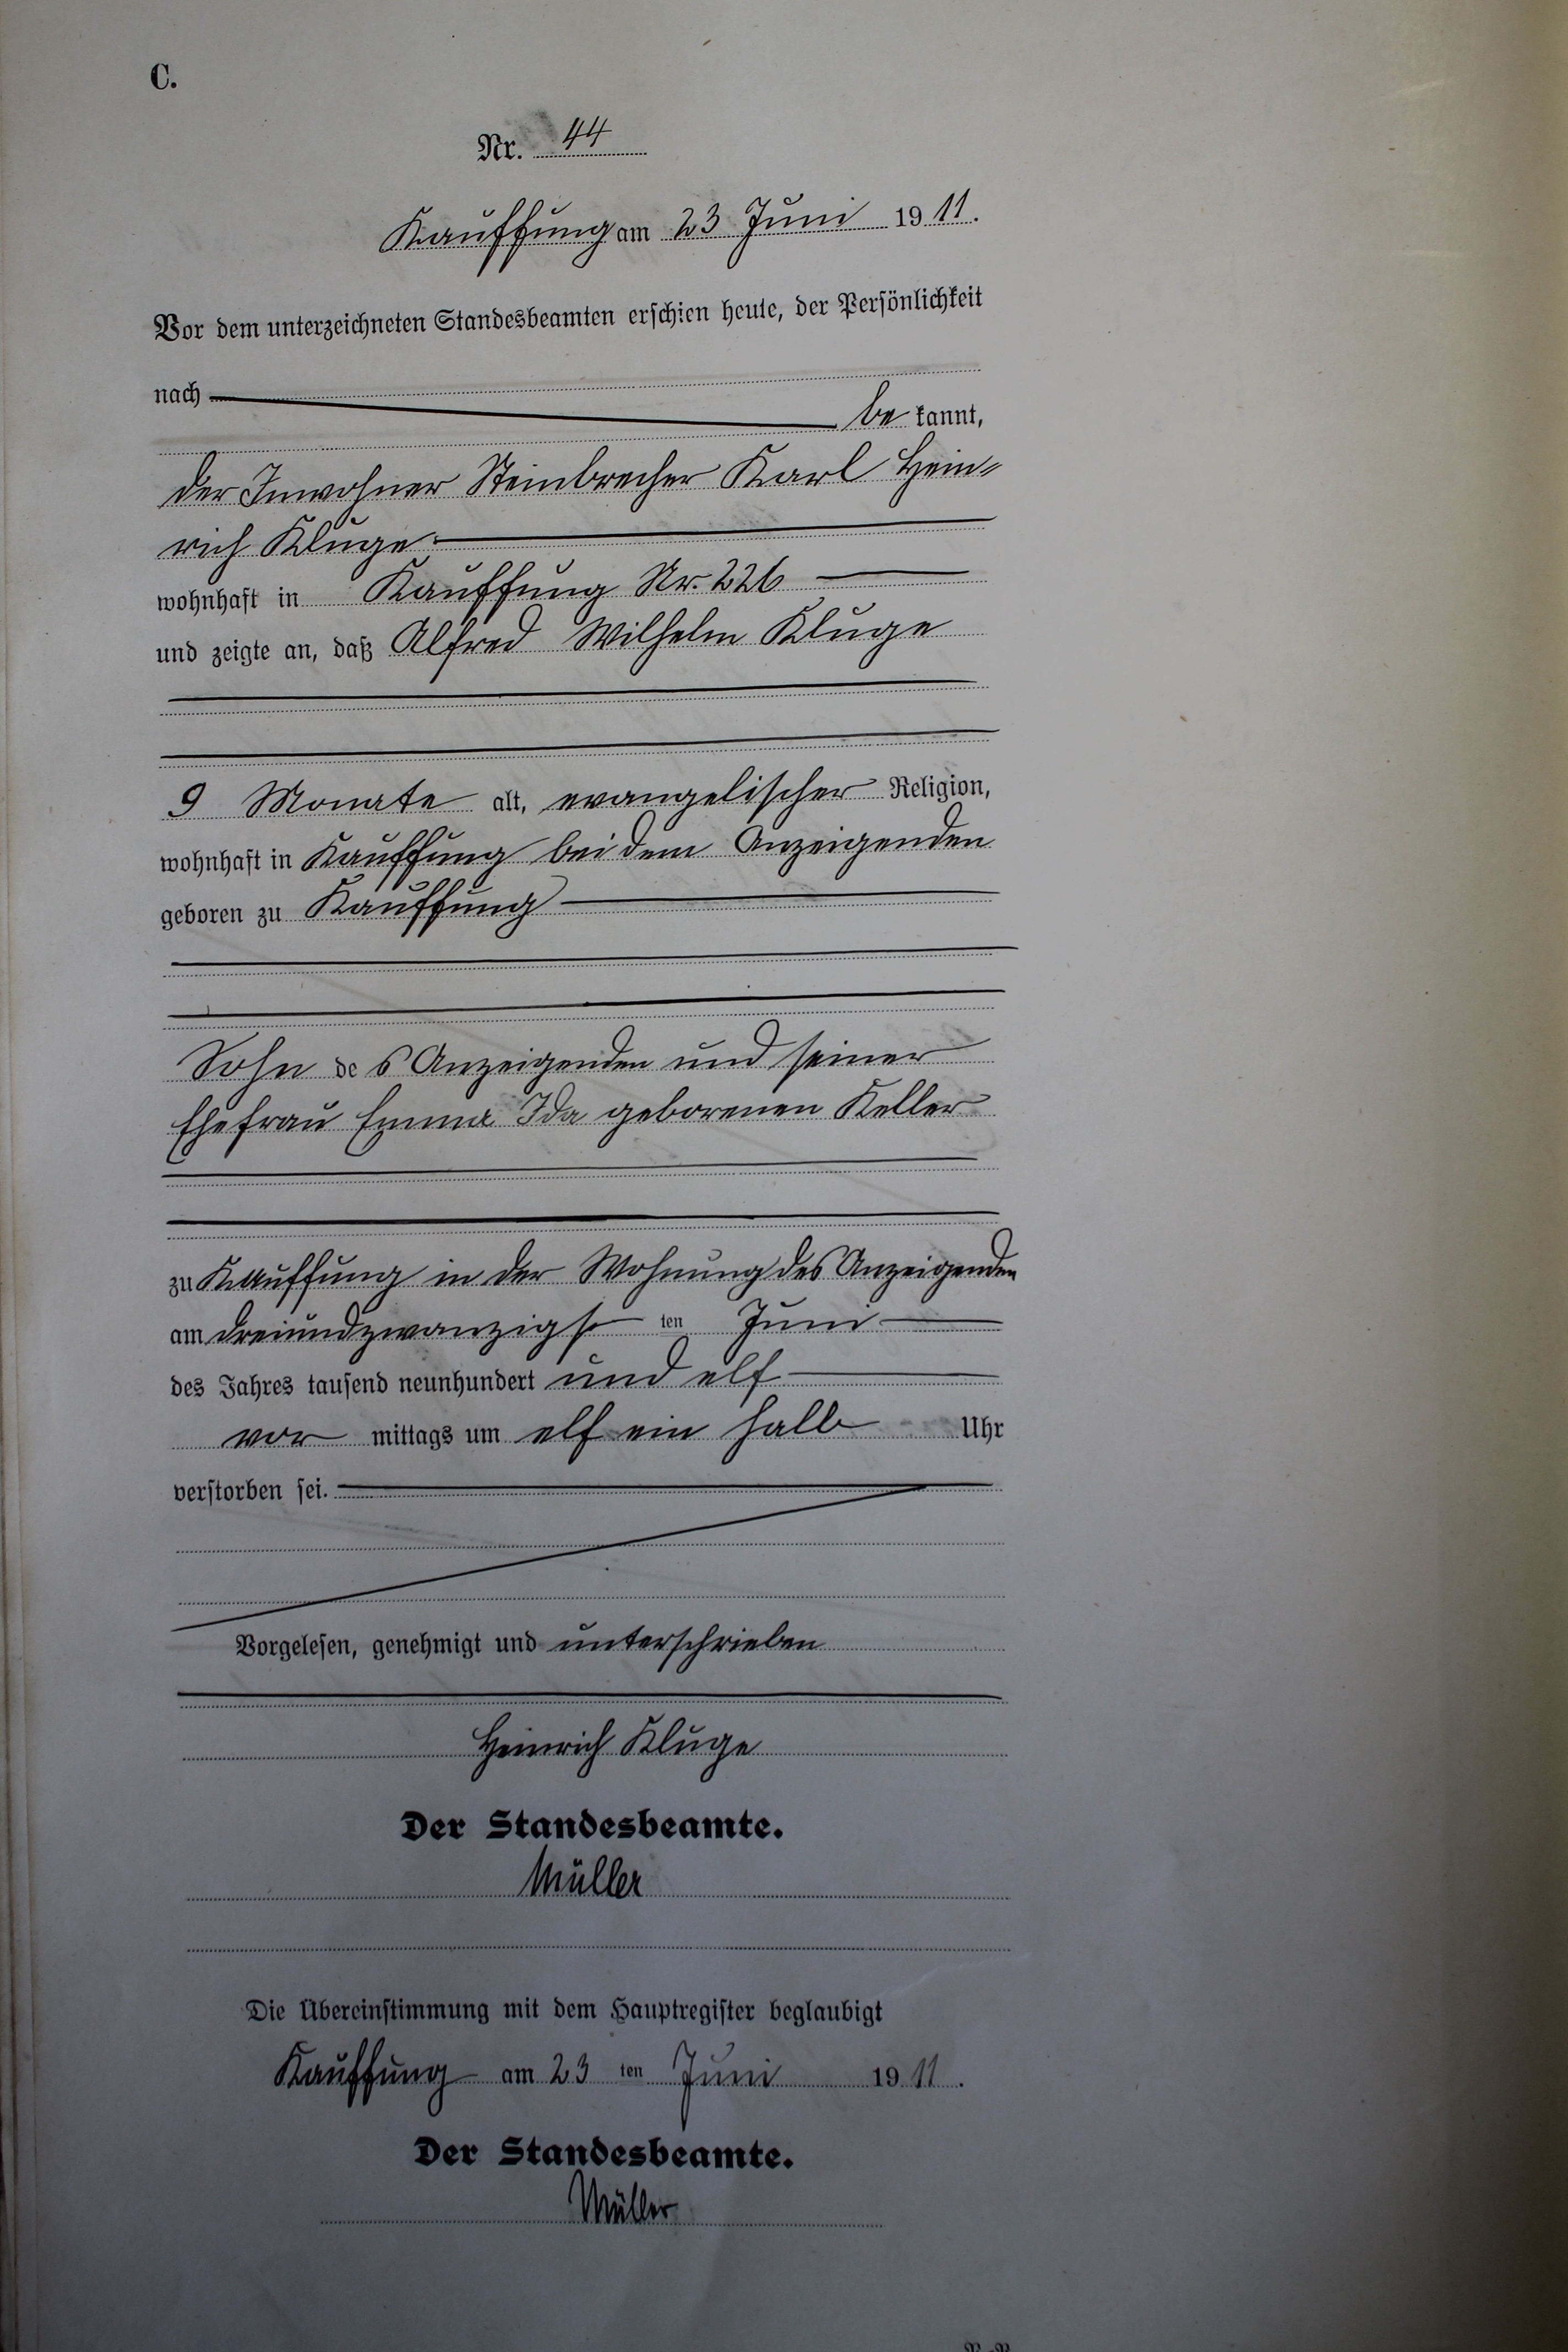 C.
Nr. 44
Kauffung am 23 Juni 1911.
Vor dem unterzeichneten Standesbeamten erschien heute, der Persönlichkeit
nach
be kannt,
der Inwohner Steinbrecher Karl Hein-
rich Kluge
wohnhaft in Kauffung Nr. 226
und zeigte an, daß Alfred Wilhelm Kluge
9 Monate alt, evangelischer Religion,
wohnhaft in Kauffung bei dem Anzeigenden
geboren zu Kauffung
Sohn des Anzeigenden und seiner
Ehefrau Emma Ida geborenen Keller
zu Kauffung in der Wohnung des Anzeigenden
am dreiundzwanzigsten Juni
des Jahres tausend neunhundert und elf
vor mittags um elf ein halb Uhr
verstorben sei.
Vorgelesen, genehmigt und unterschrieben
Heinrich Kluge
Der Standesbeamte.
Müller
Die Übereinstimmung mit dem Hauptregister beglaubigt
Kauffung am 23 ten Juni 1911.
Der Standesbeamte.
Müller